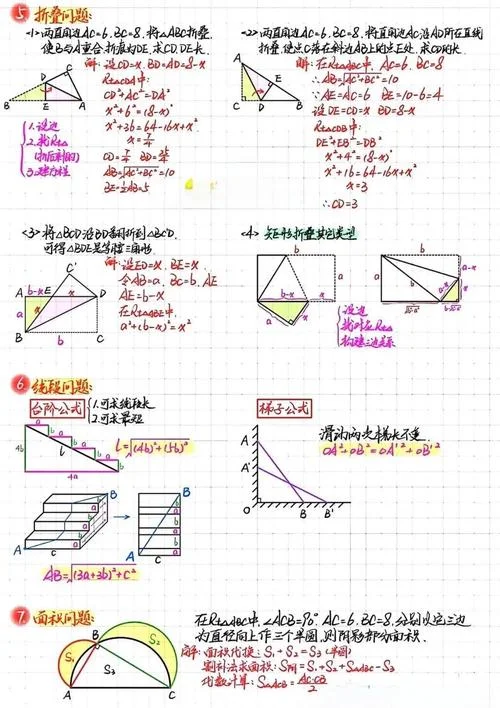 5 折叠问题:
<1> 两直角边AC=6, BC=8, 将△ABC折叠,
使B与A重合,折痕为DE,求CD,DE长.
解: 设CD=x. BD=AD=8-x
Rt△CDA中:
CD²+AC²=DA²
x²+6²=(8-x)²
x²+36=64-16x+x²
x=7/4
CD=7/4 BD=25/4
AB=√AC²+BC²=10
BE=1/2AB=5
1.设边
2.找Rt△
(折后剩的)
3.建方程
B D C E A
<2> 两直角边AC=6, BC=8, 将直角边AC沿AD所在直线
折叠,使点C落在斜边AB上的点E处, 求CD的长.
解: 在Rt△ABC中, AC=6, BC=8
∴AB=√AC²+BC²=10
∴AE=AC=6 BE=10-6=4
设DE=CD=x BD=8-x
Rt△CDB中:
DE²+EB²=DB²
x²+4²=(8-x)²
x²+16=64-16x+x²
x=3
∴CD=3
A E C D B
<3> 将△BCD沿BD翻折到△BC'D,
可得△BDE是等腰三角形.
解: 设ED=x, BE=x.
令AB=a, BC=b, AE
AE=b-x
在Rt△ABE中.
a²+(b-x)²=x²
C'
A b-x E x D
a x
B b C
<4> 矩形折叠其它类型
b a b-x x
b a a-x x a-x
√b²-a² b-√b²-a²
设边
找对应Rt△
构建三边关系
6 线段问题:
台阶公式
1.可求线段长
2.可求最短
4b l a b 4a
l=√(4b)²+(5b)²
A B C a b
AB=√(3a+3b)²+c²
梯子公式
滑动两次梯长不变.
OA²+OB²=OA'²+OB'²
A A' O B B'
7 面积问题:
在Rt△ABC中, ∠ACB=90° AC=6, BC=8, 分别以它三边
为直径向上作三个半圆, 则阴影部分面积.
解: 面积代换: S₁+S₂=S₃(半圆)
割补法求面积: S阴=S₁+S₂+S△ABC-S₃
代数计算: S△ACB=AC·CB/2
S₁ B S₂ S₃ A C